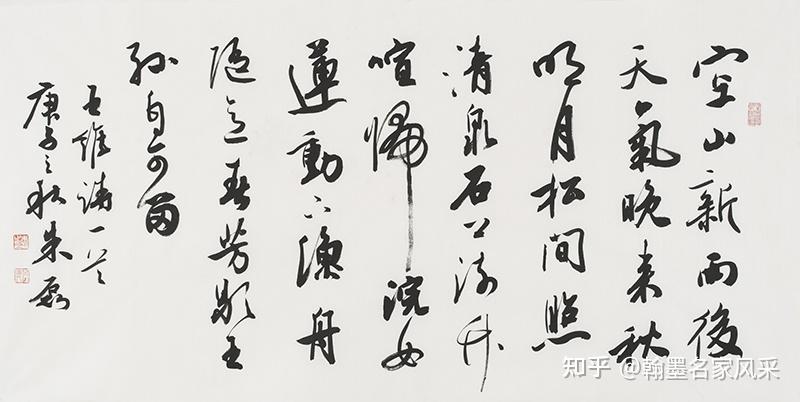 空山新雨後
天氣晚来秋
明月松間照
清泉石上流竹
喧歸浣女
蓮動下漁舟
随意春芳歇王
孫自可留
王維诗一首
庚子之秋朱
知乎 @翰墨名家风采